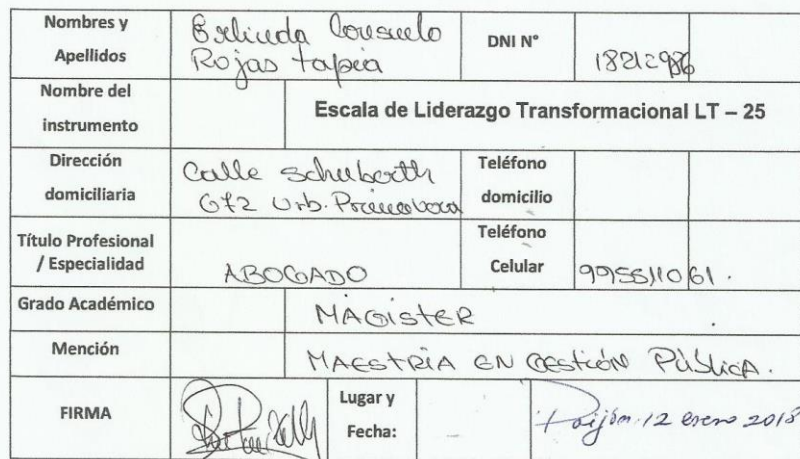 Nombres y
Apellidos
Erlinda Consuelo
Rojas tapia
DNI N°
18212986
Nombre del
instrumento
Escala de Liderazgo Transformacional LT – 25
Dirección
domiciliaria
Calle Schuberth
672 Urb. Primavera
Teléfono
domicilio
Título Profesional
/ Especialidad
ABOGADO
Teléfono
Celular
995511061.
Grado Académico
MAGISTER
Mención
MAESTRIA EN GESTIÓN PÚBLICA.
FIRMA
Lugar y
Fecha:
Paiján 12 enero 2018